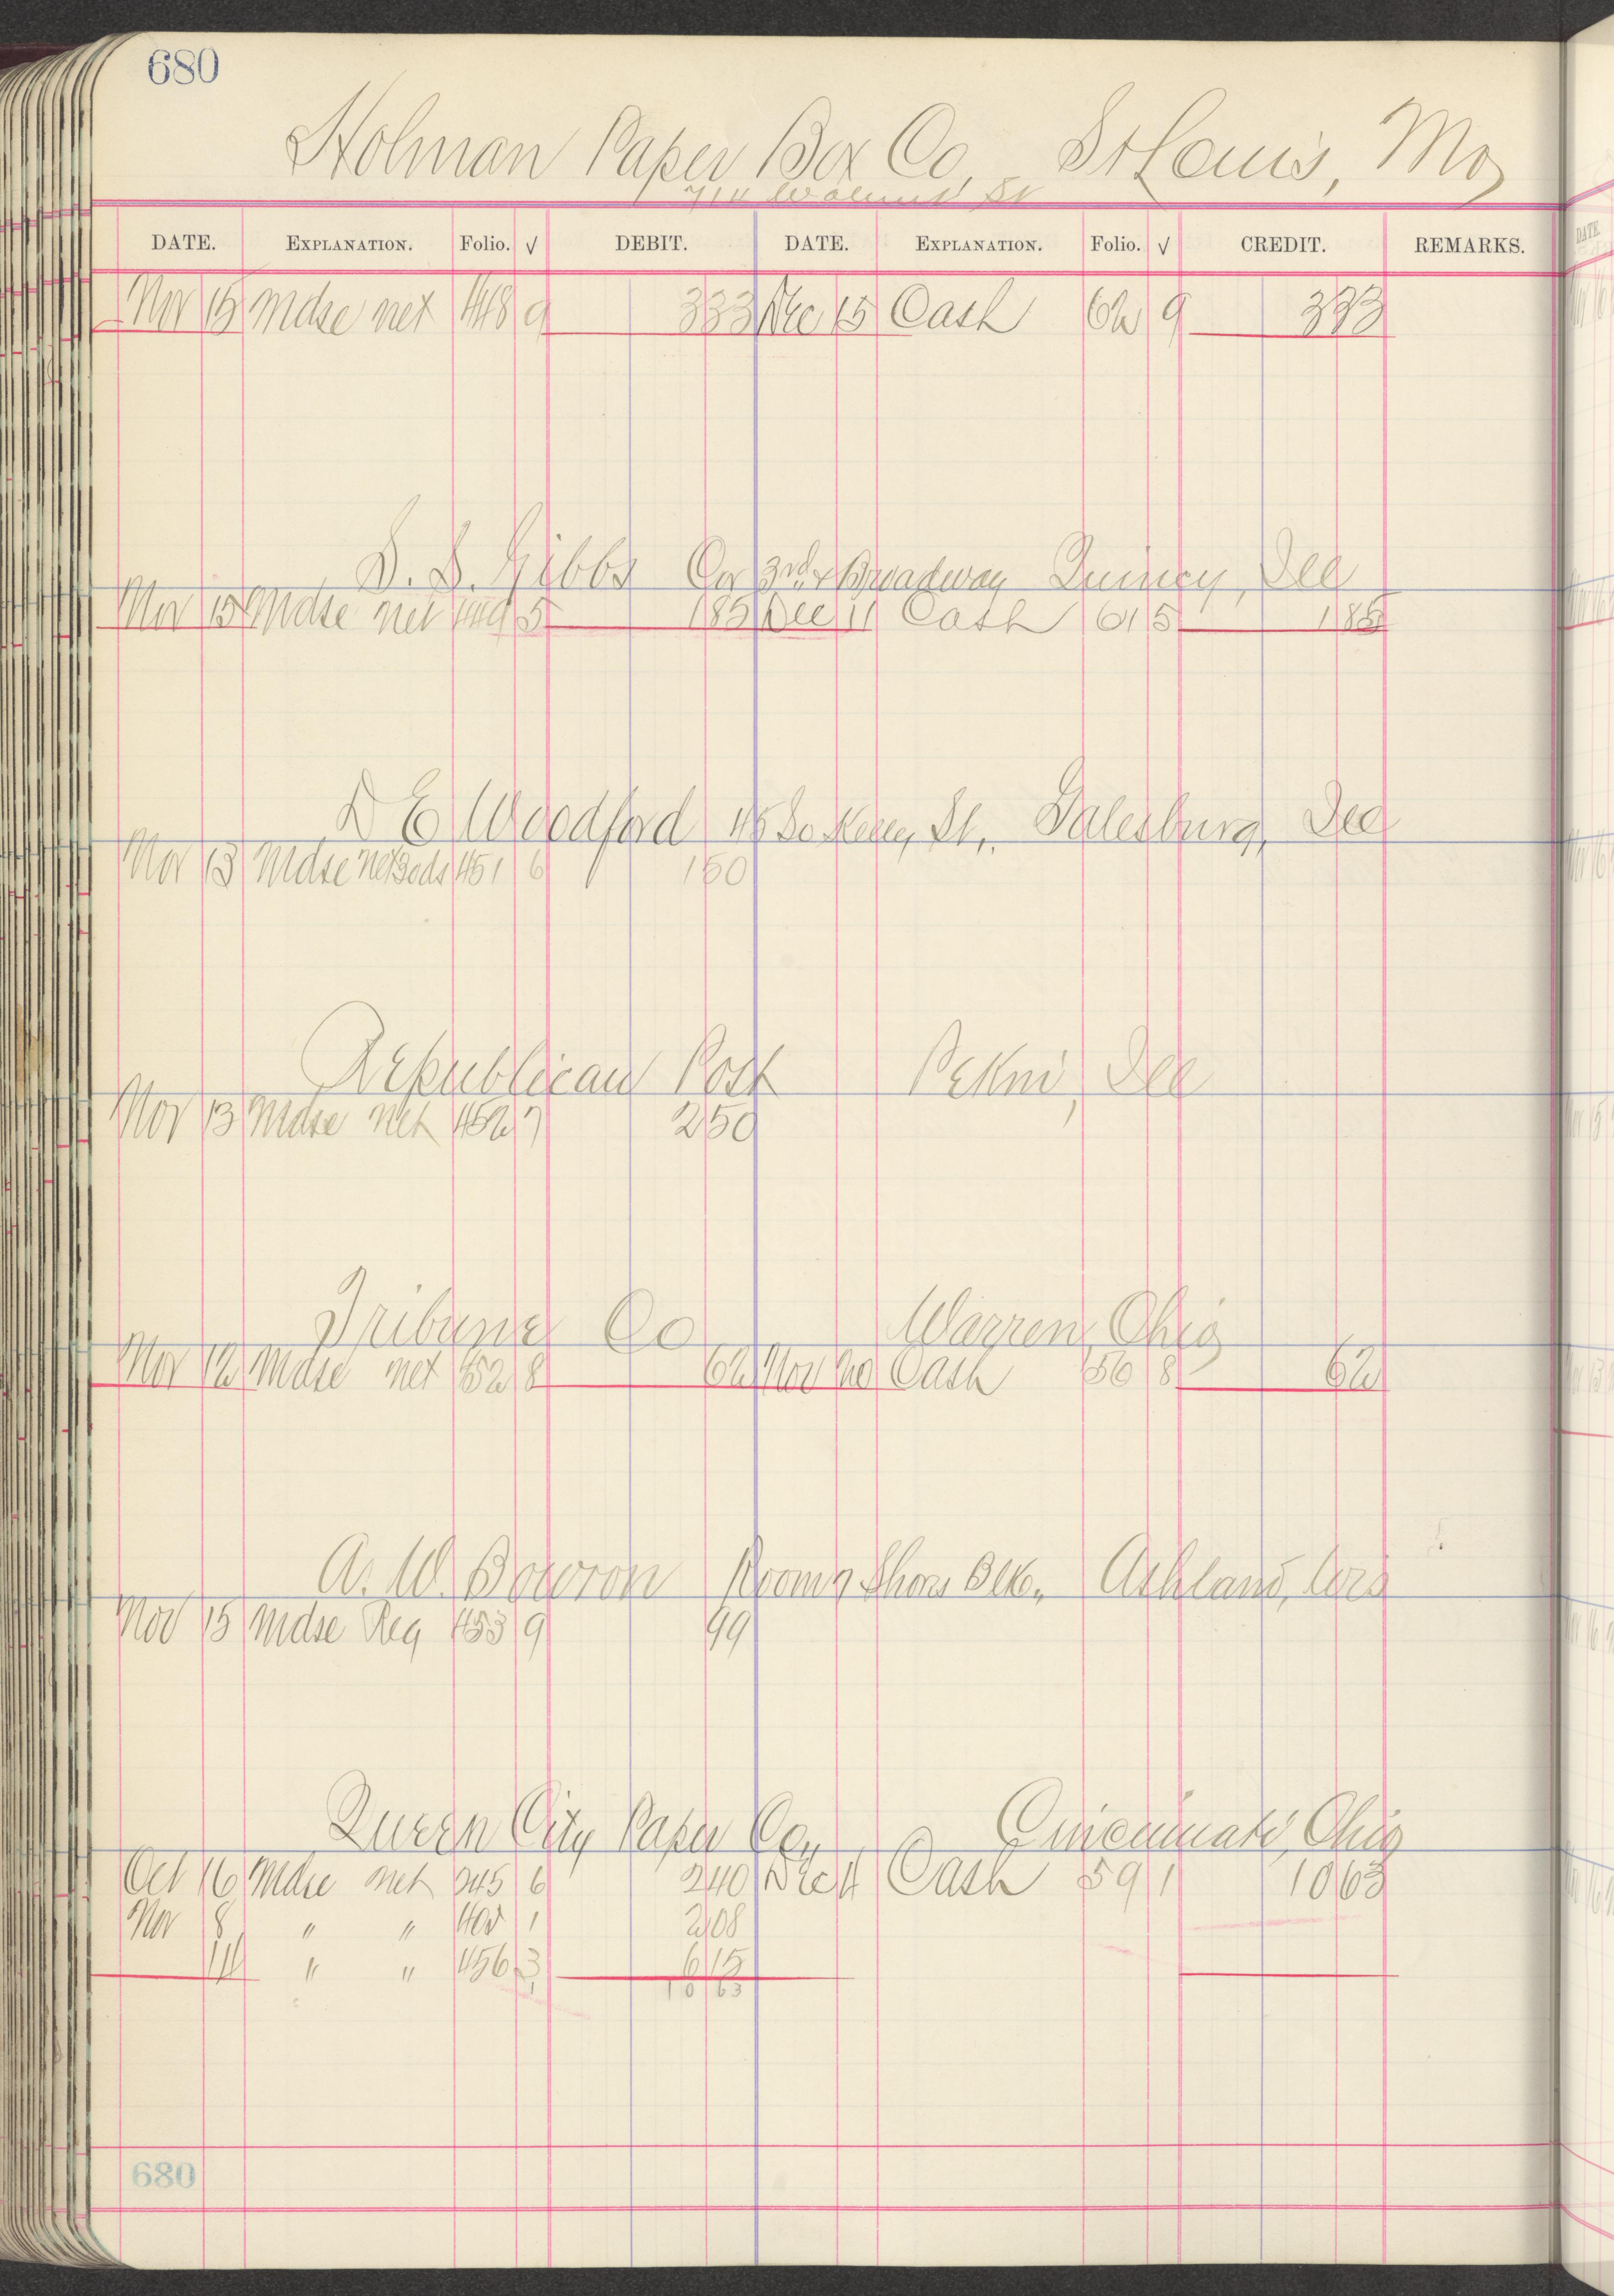 680
Holman Paper Box Co, St Louis, Mo
714 Walnut St
DATE. EXPLANATION. Folio. √ DEBIT. DATE. EXPLANATION. Folio. √ CREDIT. REMARKS.
Nov 15 Mdse net 448 9 333 Dec 15 Cash 62 9 333
S. S. Gibbs Cor 3rd & Broadway Quincy, Ill
Nov 15 Mdse net 449 5 185 Dec 11 Cash 61 5 185
D E Woodford 45 So Kelley St,. Galesburg, Ill
Nov 13 Mdse net 451 6 150
Republican Post Pekin, Ill
Nov 13 Mdse net 452 7 250
Tribune Co Warren, Ohio
Nov 12 Mdse net 452 8 62 Nov 20 Cash 56 8 62
A. W. Bowron Room 7 Shores Blk. Ashland, Wis
Nov 15 Mdse Reg 453 9 99
Queen City Paper Co, Cincinnati, Ohio
Oct 16 Mdse net 245 6 240 Dec 4 Cash 59 1 1063
Nov 8 " " 402 1 208
14 " " 456 3 615
1 1063
680